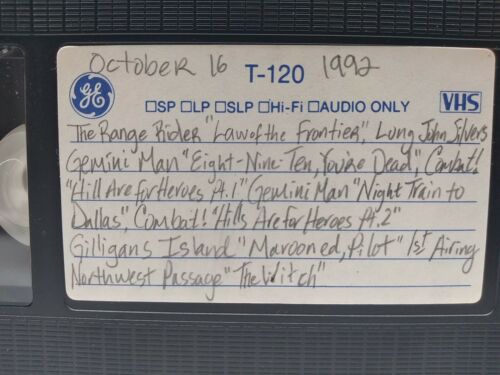 October 16 T-120 1992
GE □SP □LP □SLP □Hi-Fi □AUDIO ONLY VHS
The Range Rider "Law of the Frontier", Long John Silvers
Gemini Man "Eight-Nine-Ten, You're Dead", Combat!
"Hill Are for Heroes Pt.1" Gemini Man "Night Train to
Dallas", Combat! "Hills Are for Heroes Pt.2"
Gilligans Island "Marooned, Pilot" 1st Airing
Northwest Passage "The Witch"